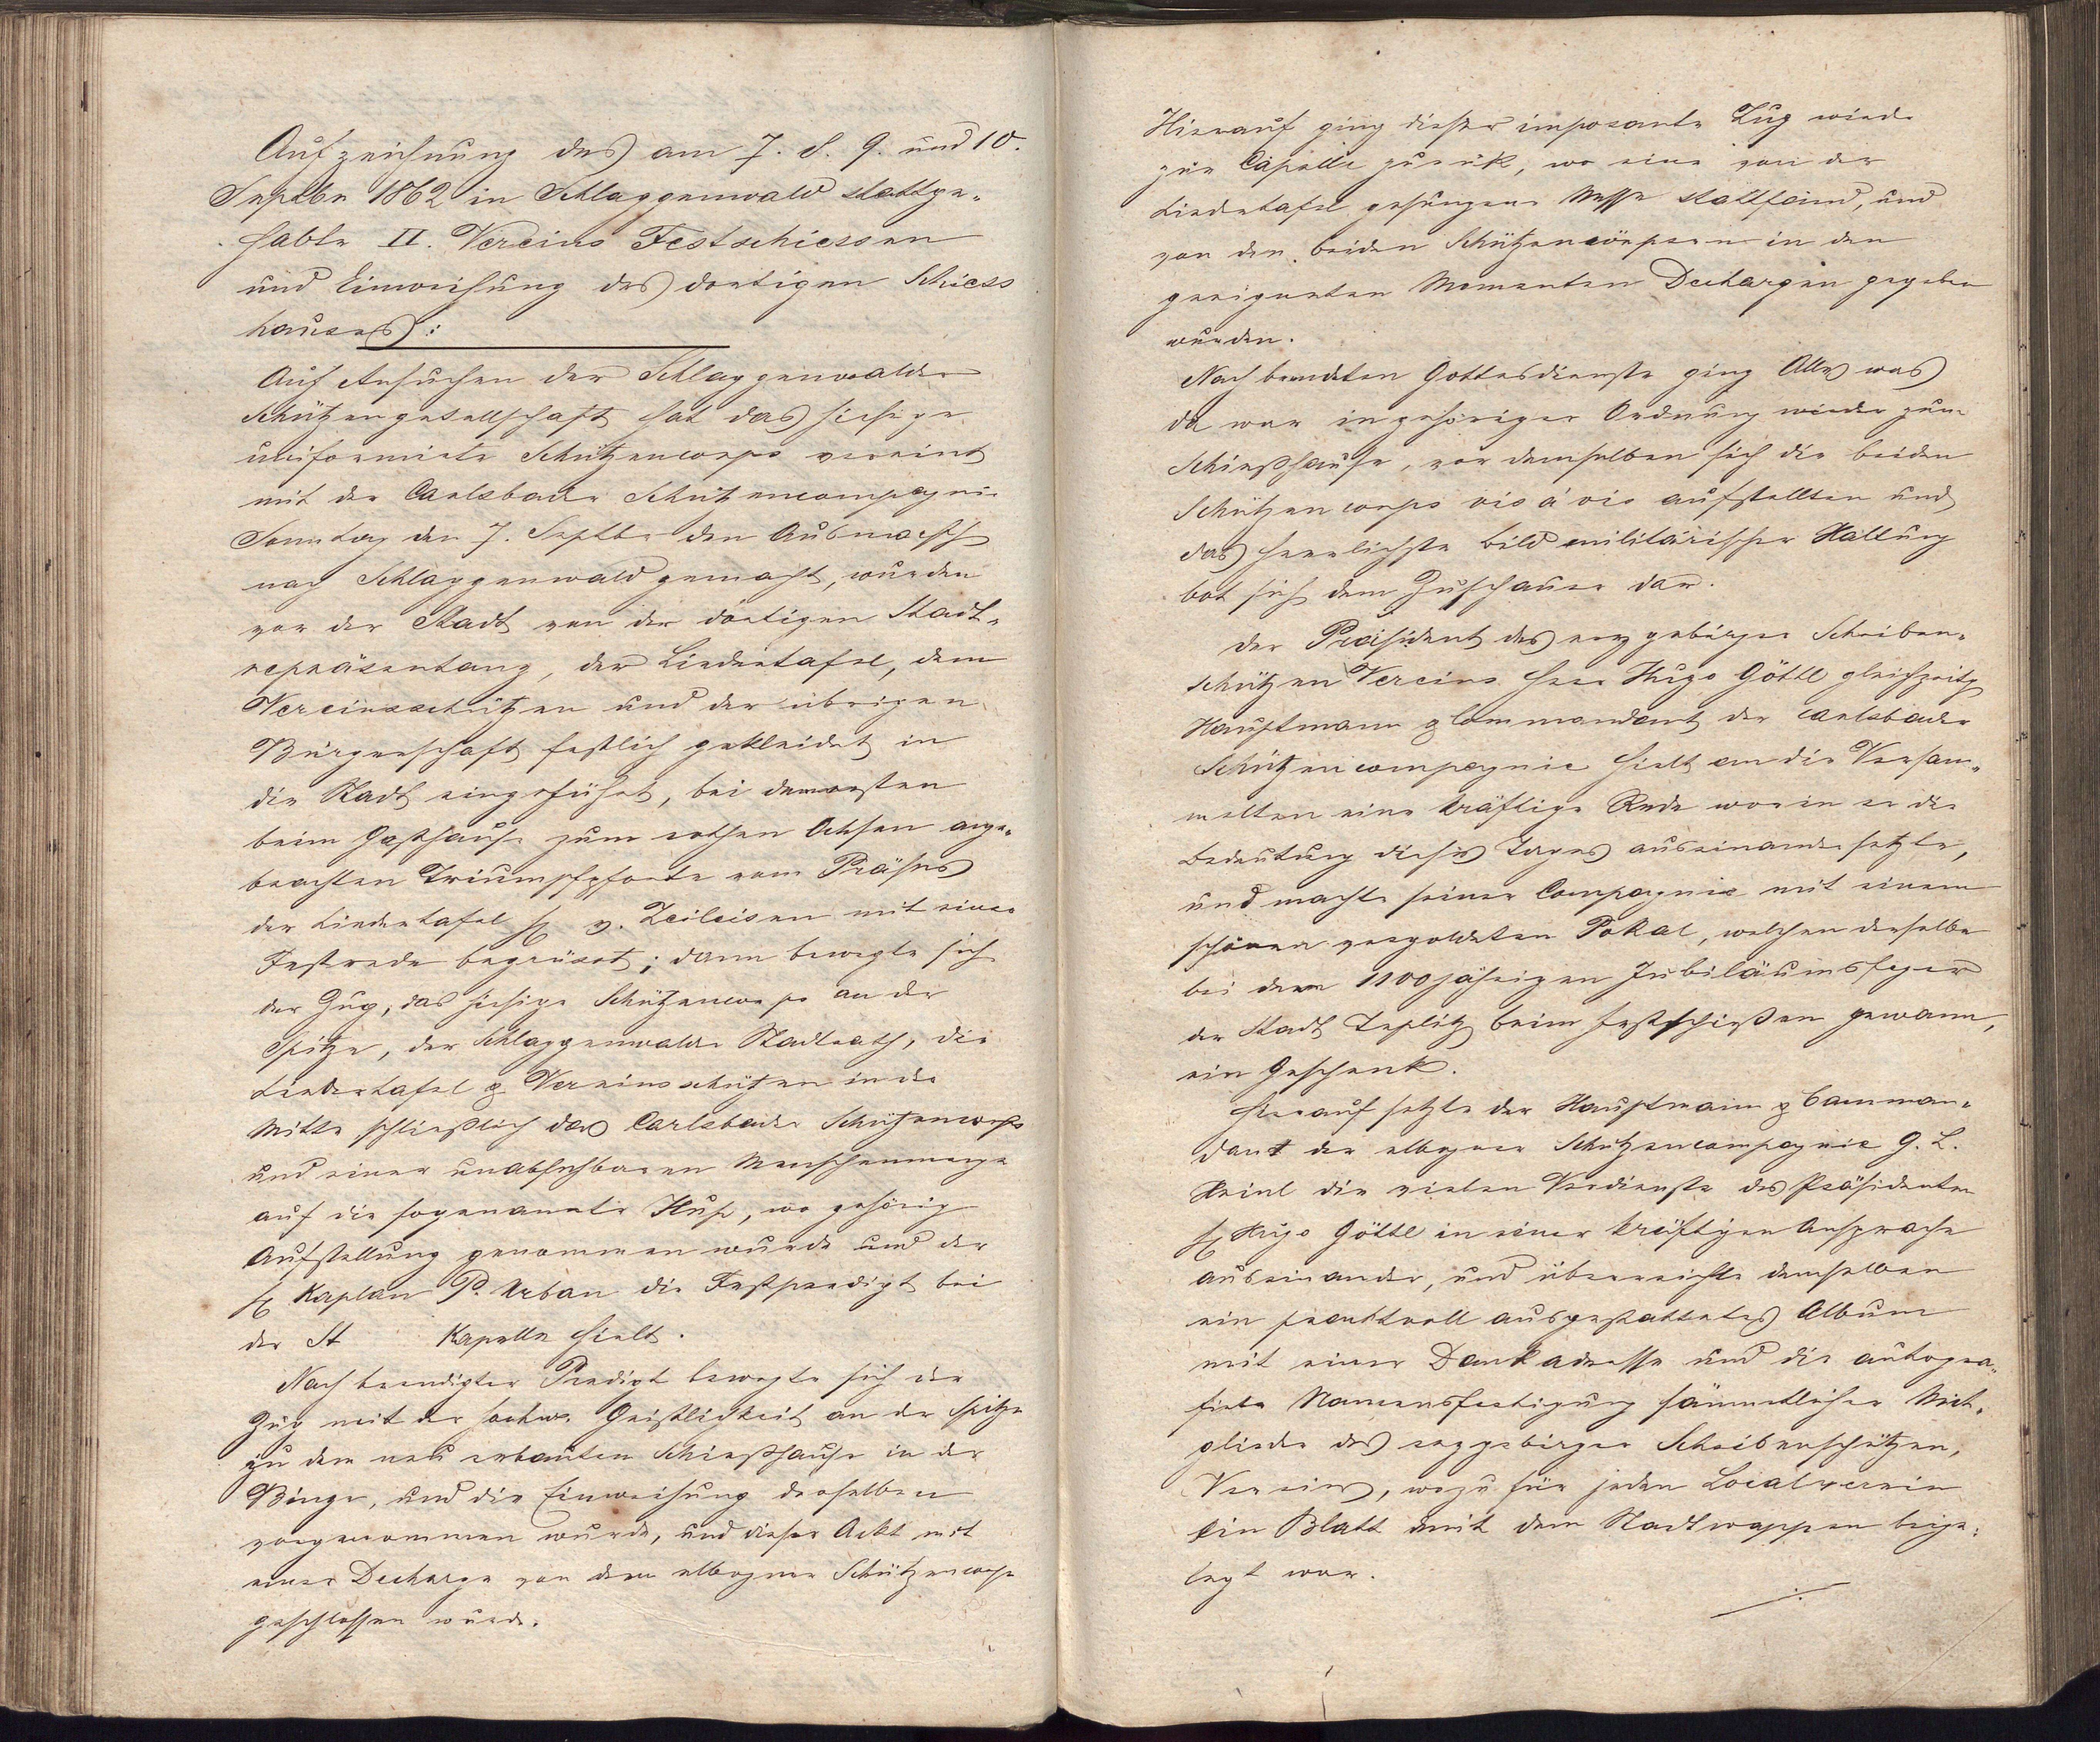 Aufzeichnung des am 7. 8. 9. und 10.
Septbr 1862 in Schlaggenwald stattge-
habte II. Vereins Festschiessen
und Einweihung des dortigen Schiess
hauses:
Auf Ansuchen der Schlaggenwalder
Schützengesellschaft hat das hiesige
uniformirte Schützencorps vereint
mit der Carlsbader Schützencompagnie
Sonntag den 7. Septbr den Ausmarsch
nach Schlaggenwald gemacht, wurden
vor der Stadt von der dortigen Stadt-
repräsentanz, der Liedertafel, dem
Vereinsschützen und der übrigen
Bürgerschaft festlich gekleidet in
die Stadt eingeführt, bei dem ersten
beim Gasthause zum rothen Ochsen ange-
brachten Triumpfpforte vom Präses
der Liedertafel H v. Zeileisen mit einer
Festrede begrüsst; dann bewegte sich
der Zug, das hiesige Schützencorps an der
Spitze, der Schlaggenwalder Stadtrath, die
Liedertafel & Vereinsschützen in der
Mitte schließlich das Carlsbader Schützencorps
und einer unabsehbaren Menschenmenge
auf die sogenannte Hup, wo gehörig
Aufstellung genommen wurde und der
H Kaplan P. Urban die Festpredigt bei
der St Kapelle hielt.
Nach beendigter Predigt bewegte sich der
Zug mit der hochw. Geistlichkeit an der Spitze
zu dem neu erbauten Schießhause in der
Binge, und die Einweihung desselben
vorgenommen wurde, und dieser Ackt mit
einer Decharge von dem elbogner Schützencorps
geschlossen wurde.
Hierauf ging dieser imposante Zug wieder
zur Capelle zurük, wo eine von der
Liedertafel gesungene Messe stattfand, und
von den beiden Schützencörpsern in den
geeigneten Momenten Dechargen gegeben
wurden.
Nach beendeten Gottesdienste ging Alles was
da war in gehöriger Ordnung wieder zum
Schießhause, vor demselben sich die beiden
Schützencorps vis á vis aufstellten und
das herrlichste Bild militärischer Haltung
bot sich dem Zuschauer dar.
Der Präsident des erzgebirger Scheiben-
schützen Vereins Herr Hugo Göttl gleichzeitig
Hauptmann & Commandant der Carlsbader
Schützencompagnie hielt an die Versam-
melten eine kräftige Rede worin er die
Bedeutung dieses Tages auseinandersetzte,
und machte seiner Compagnie mit einem
schönen vergoldeten Pokal, welchen derselbe
bei dem 1100jährigen Jubiläumsfeyer
der Stadt Teplitz beim Festschießen gewann,
ein Geschenk.
Hierauf setzte der Hauptmann & Comman-
dant der elbogner Schützencompagnie G. L.
Heinl die vielen Verdienste des Präsidenten
H Hugo Göttl in einer kräftigen Ansprache
auseinander, und überreichte demselben
ein prachtvoll ausgestattetes Album
mit einer Dankadresse und die autogra-
firte Namensfertigung sämmtlicher Mit-
glieder des erzgebirger Scheibenschützen,
Vereins, wozu für jeden Localverein
ein Blatt mit dem Stadtwappen beige-
legt war.